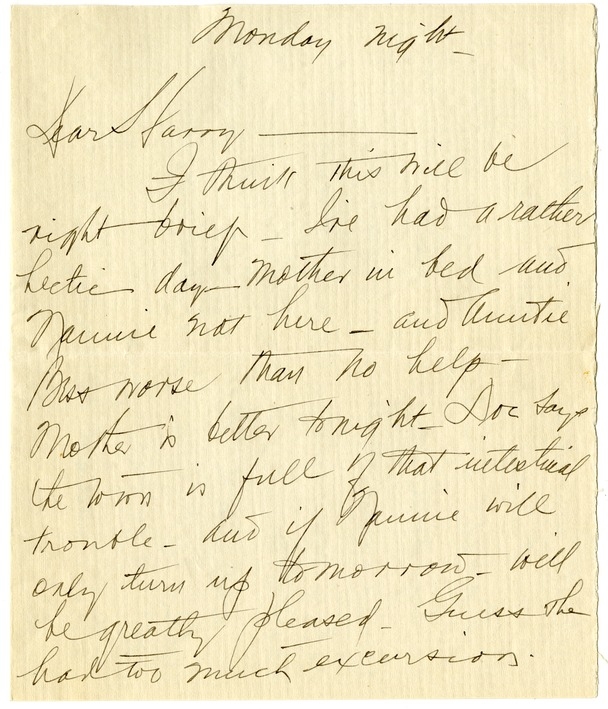 Monday night –
Dear Harry ———
I think this will be
right brief – I've had a rather
hectic day – Mother in bed and
Nannie not here – and Auntie
Bess worse than no help –
Mother is better tonight – Doc says
the town is full of that intestinal
trouble – and if Nannie will
only turn up tomorrow – will
be greatly pleased – Guess she
had too much excursion.